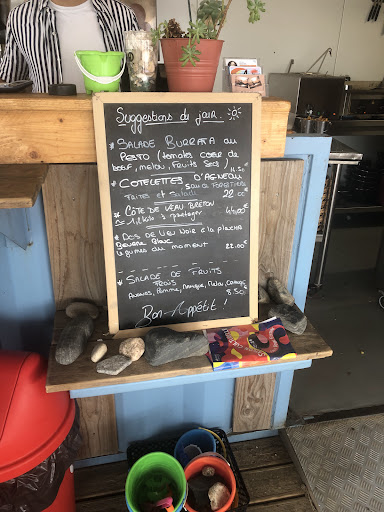 Suggestions du jour.
* SALADE BURRATA au
PESTO (tomates coeur de
boeuf, melon, Fruits Secs)
* COTELETTES D'AGNEAU
SAUCE FORESTIÈRE
FRITES et SALADE 22.00
* CÔTE DE VEAU BRETON
à partager
* DOS DE LIEU NOIR à la plancha
Beurre Blanc
légumes du moment 22.00
SALADE DE FRUITS
FRAIS
ANANAS, POMME, MANGUE, MELON,
8.50
Bon Appétit !